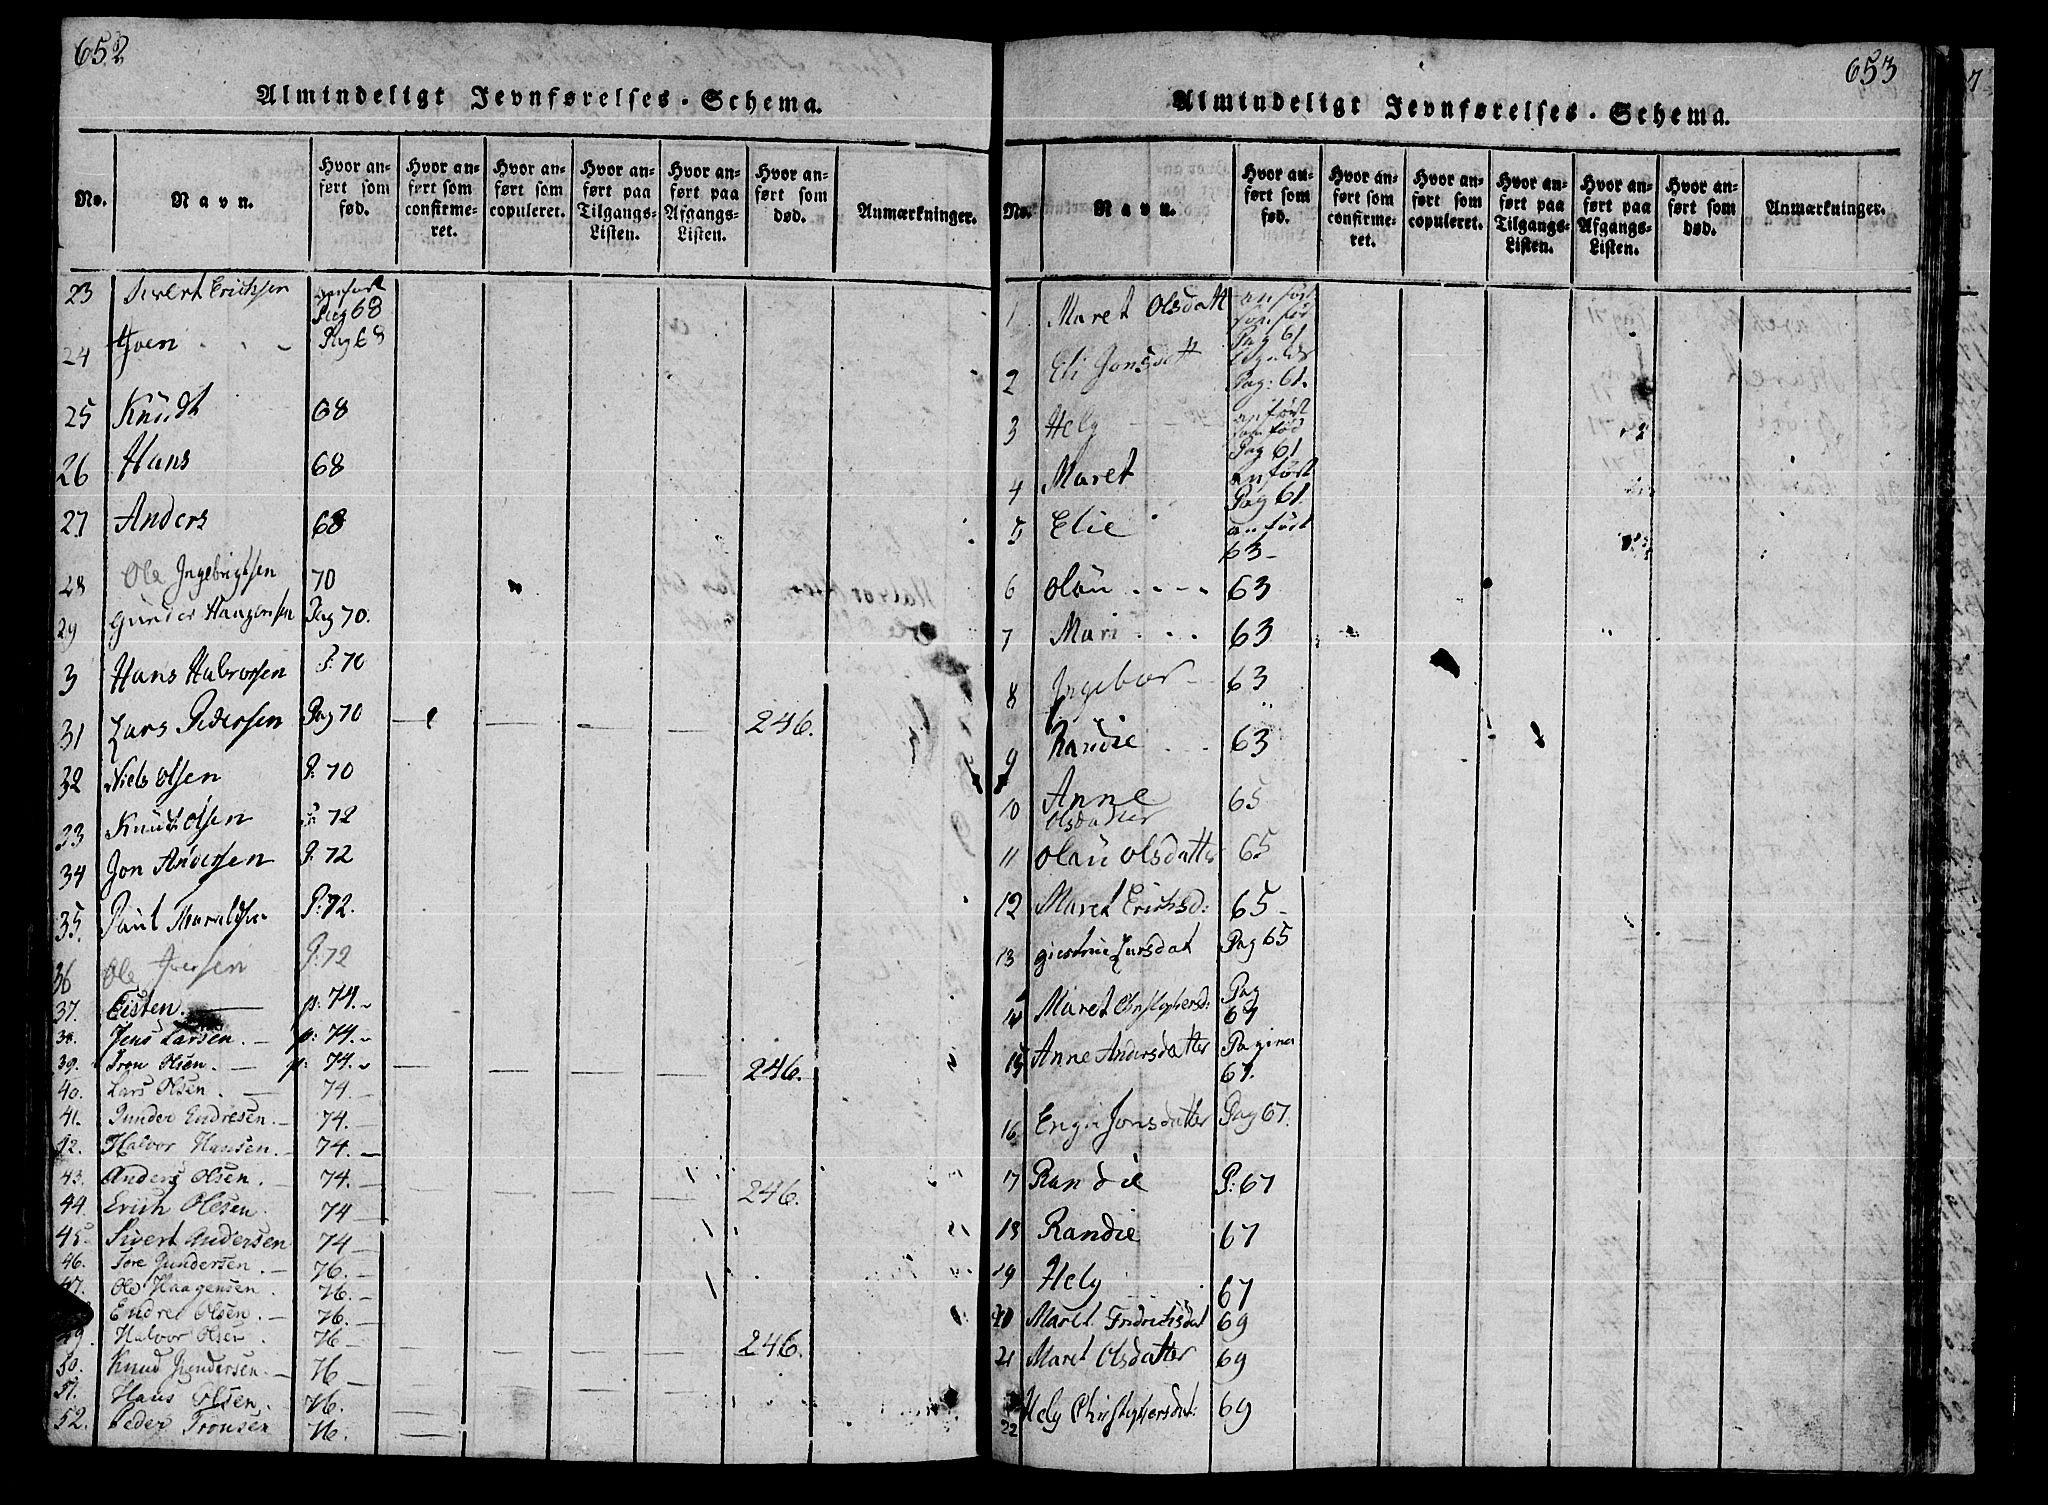 652
Almindeligt Jevnførelses-Schema.
No. Navn. Hvor anført som fød. Hvor anført som confirmeret. Hvor anført som copuleret. Hvor anført paa Tilgangs-Listen. Hvor anført paa Afgangs-Listen. Hvor anført som død. Anmærkninger.
23 Siwert Erichsen anført Pag 68
24 Iven Pag 68
25 Knüdt 68
26 Hans 68
27 Anders 68
28 Ole Ingebrigtsen 70
29 Günder Haagensen Pag 70.
3 Hans Halvorsen P: 70
31 Lars Pedersen Pag 70 246.
32 Niels Olsen P: 70
33 Knud Olsen P: 72
34 Jon Andersen P: 72
35. Paul P: 72.
36 Ole Iversen P: 72
37. Eisten. p: 74.
38. Jens Larsen. p: 74.
39. Tron Olsen. p: 74. 246.
40. Lars Olsen. 74.
41. Gunder Endresen. 74.
42. Halvor Hansen. 74.
43. Anders Olsen. 74. 246.
44. Erich Olesen. 74
45. Sivert Andersen 74
46. Tore Gundersen. 76.
47. Ole Haagensen. 76.
Endre Olsen. 76.
49. Halvor Olsen. 76 246.
50. Knud Gundersen. 76
51. Hans Olsen. 76.
52. Peder Tronsen 76.
653
Almindeligt Jevnførelses-Schema.
No. Navn. Hvor anført som fød. Hvor anført som confirmeret. Hvor anført som copuleret. Hvor anført paa Tilgangs-Listen. Hvor anført paa Afgangs-Listen. Hvor anført som død. Anmærkninger.
1 Maret Olsdatt anført som fød Pag 61
2 Eli Jonsdatt Pag: 61.
3 Hely anført som fød Pag 61
4 Maret anført Pag 61.
5 Elie anført 63
6 Olau 63
7 Mari 63
8 Ingebor 63
9 Randie 63
10 Anne Olsdatter 65
11 Olau Olsdatter 65
12 Maret Erichsd: 65
13 Giertrue Larsdat Pag 65
14 Maret Christophersd: Pag 67
15 Anne Andersdatter Pagina 67.
16 Jonsdatter Pag 67.
17 Randie P: 67
18 Randie 67
19 Hely 67
20 Maret Fridrichsdat 69
21 Maret Olsdatter 69
22 Hely Christophersdat: 69